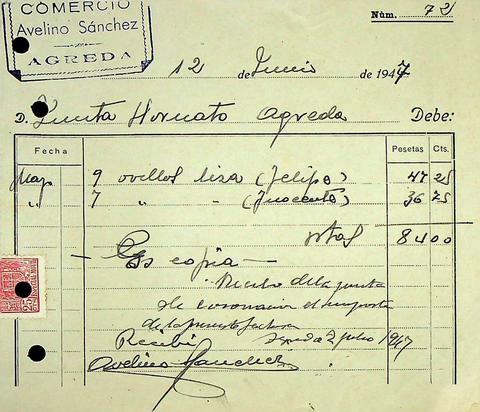 COMERCIO
Avelino Sánchez
AGREDA
Núm. 72
12 de Junio de 1947
D. Junta Hornato Agreda Debe:
Fecha Pesetas Cts.
Mayo 9 ovillos liza (Felipa) 47 25
" 7 " " (Inocenta) 36 75
total 84 00
Es copia
Recibi de la junta
de coronación el importe
de la presente factura
Agreda 2 julio 1947
Recibi
Avelino Sanchez